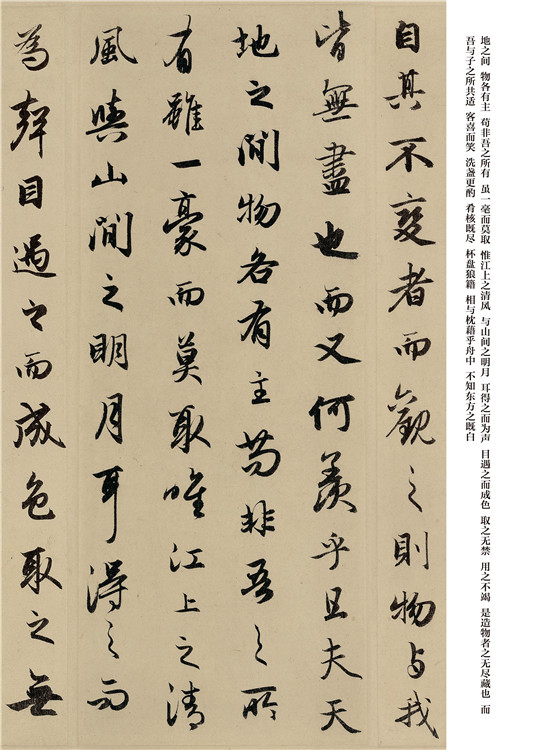 地之间 物各有主 苟非吾之所有 虽一毫而莫取 惟江上之清风 与山间之明月 耳得之而为声 目遇之而成色 取之无禁 用之不竭 是造物者之无尽藏也 而
吾与子之所共适 客喜而笑 洗盏更酌 肴核既尽 杯盘狼籍 相与枕藉乎舟中 不知东方之既白
自其不變者而觀之則物与我
皆無盡也而又何羨乎且夫天
地之間物各有主苟非吾之所
有雖一豪而莫取唯江上之清
風與山間之明月耳得之而
為聲目遇之而成色取之無